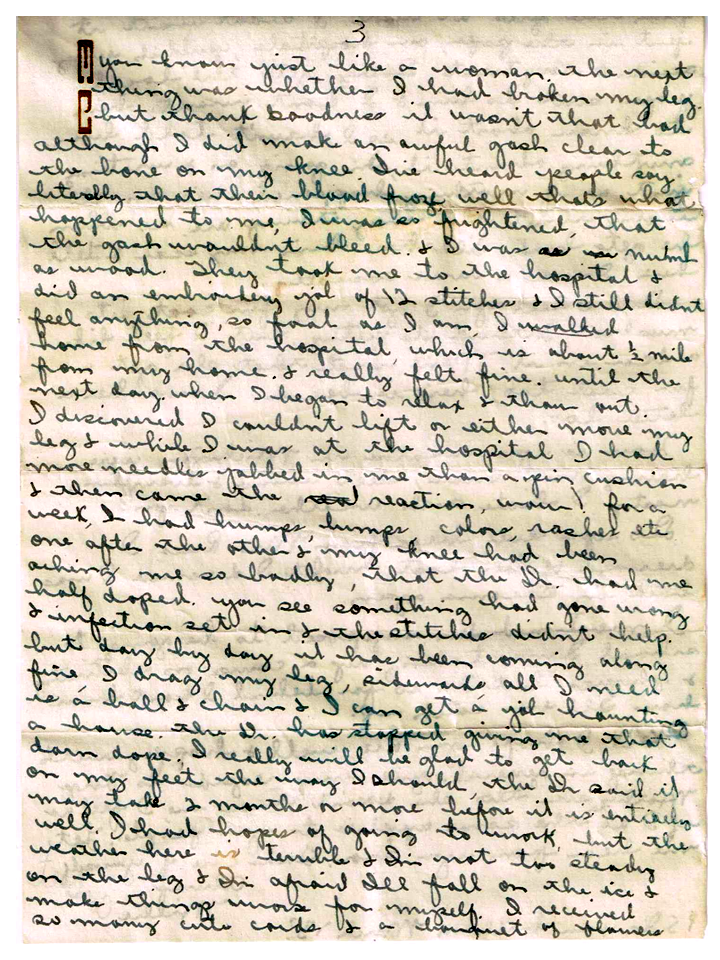 3
you know just like a woman. the next
thing was whether I had broken my leg.
but thank goodness it wasn't that bad
although I did make an awful gash clear to
the bone on my knee. I've heard people say
literally that their blood froze well thats what
happened to me, I was so frightened, that
the gash wouldnt bleed. & I was numb
as wood. They took me to the hospital &
did an embroidery job of 12 stitches & I still didnt
feel anything, so fool as I am, I walked
home from the hospital, which is about ½ mile
from my home. & really felt fine. until the
next day. when I began to relax & thaw out.
I discovered I couldnt lift or either move my
leg & while I was at the hospital I had
more needles jabbed in me than a pin cushion
& then came the reaction, wow! for a
week, I had humps, bumps, colors, rashes etc
one after the other & my knee had been
aching me so badly, that the Dr. had me
half doped. you see something had gone wrong
& infection set in & the stitches didn't help.
but day by day it has been coming along
fine I drag my leg, sidewards all I need
is a ball & chain & I can get a job haunting
a house. the Dr. has stopped giving me that
darn dope. I really will be glad to get back
on my feet the way I should, the Dr said it
may take 2 months or more before it is entirely
well. I had hopes of going to work, but the
weather here is terrible & Im not too steady
on the leg & Im afraid Ill fall on the ice &
make things worse for myself. I received
so many cute cards & a bouquet of flowers